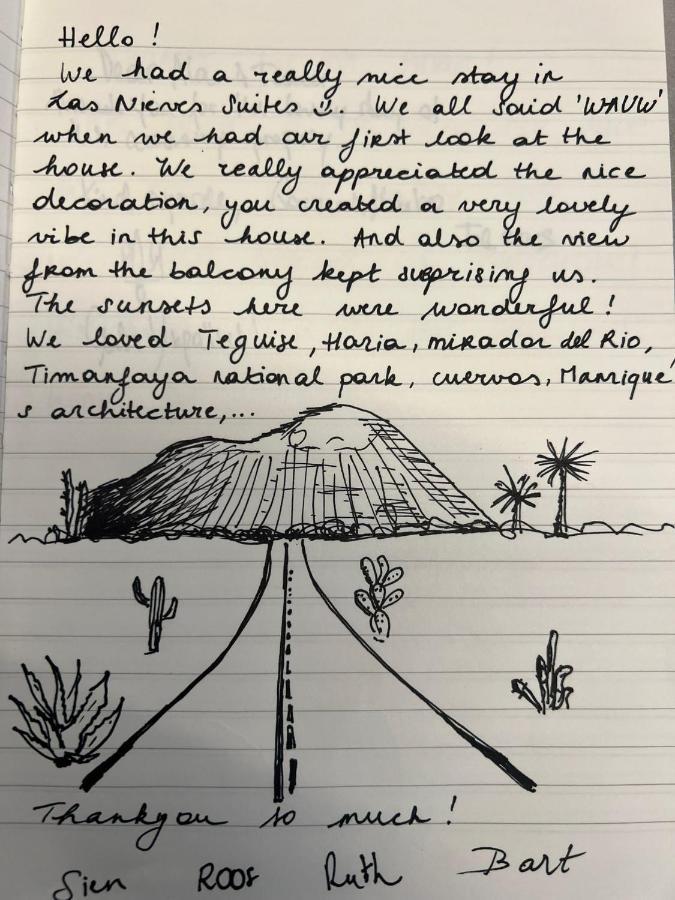 Hello !
We had a really nice stay in
Las Nieves Suites :). We all said 'WAUW'
when we had our first look at the
house. We really appreciated the nice
decoration, you created a very lovely
vibe in this house. And also the view
from the balcony kept suprising us.
The sunsets here were wonderful !
We loved Teguise, Haria, mirador del Rio,
Timanfaya national park, cuervos, Manrique'
s architecture,...
Thankyou so much !
Sien Roos Ruth Bart